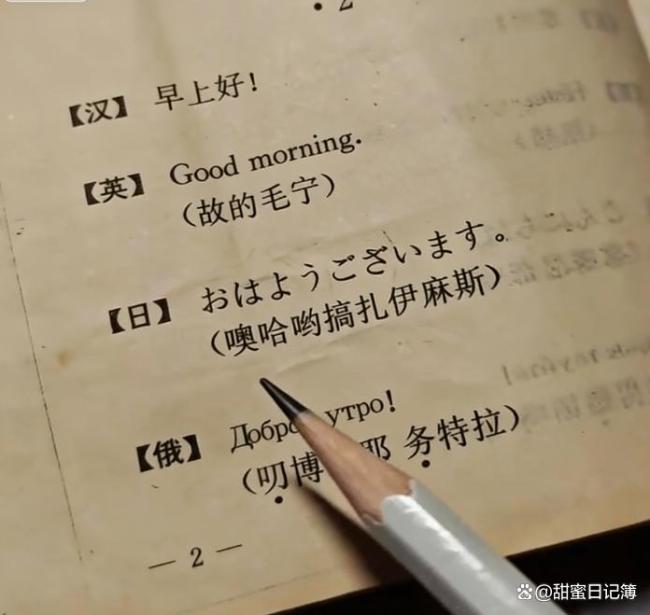 · 2
【汉】 早上好!
【英】 Good morning.
(故的毛宁)
【日】 おはようございます。
(噢哈哟搞扎伊麻斯)
【俄】 утро!
(叨博 耶 务特拉)
— 2 —
@甜蜜日记簿